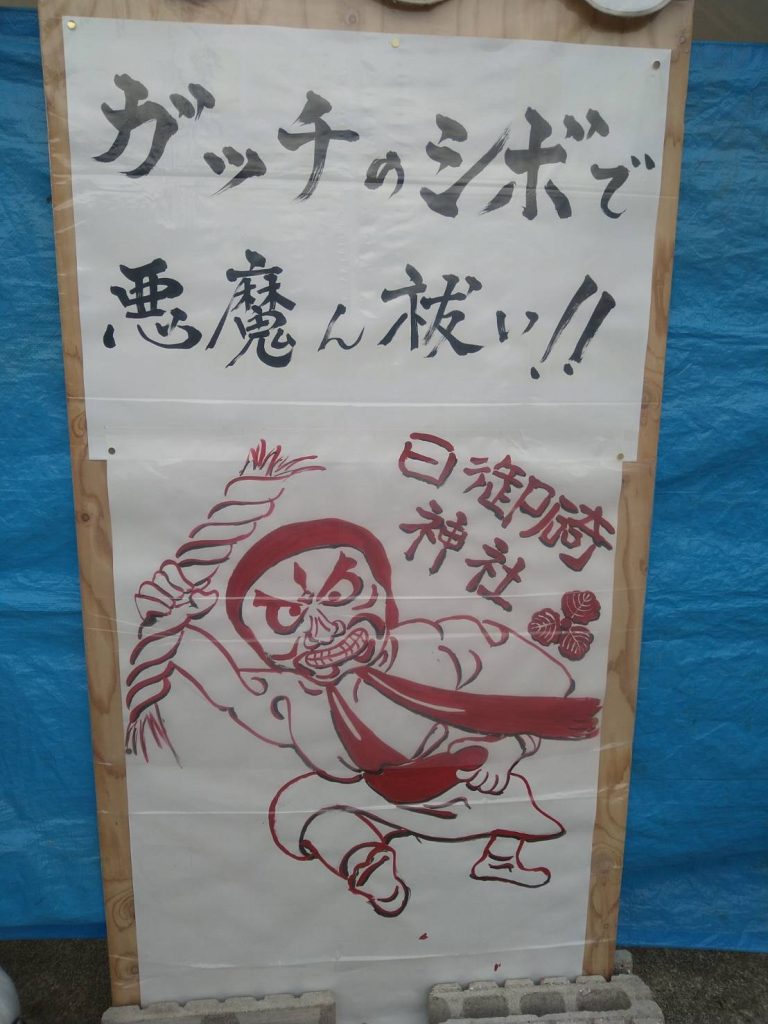 ガッチのシボで
悪魔ん祓い!!
日御碕
神社